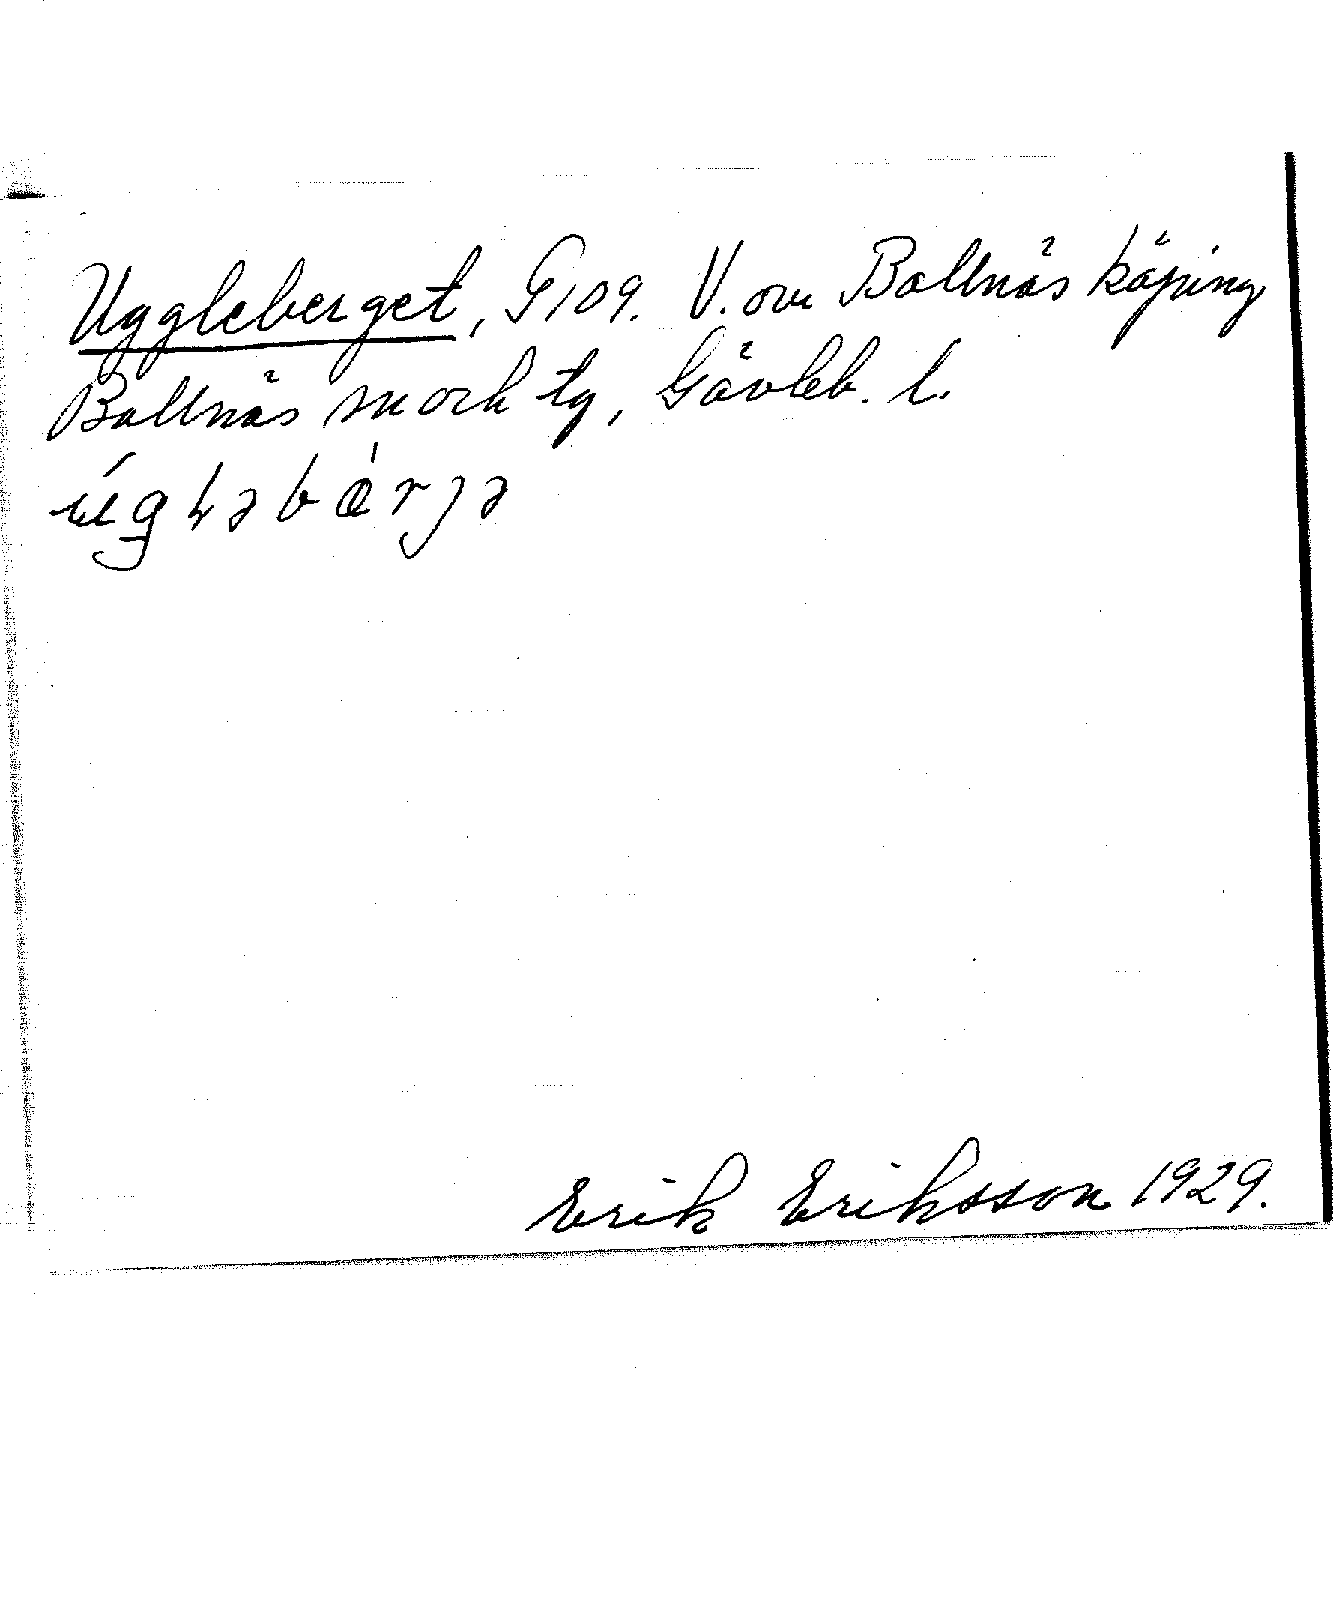 Uggleberget, G109. V. om Bollnäs köping
Bollnäs sn och tg, Gävleb. l.
Erik Eriksson 1929.